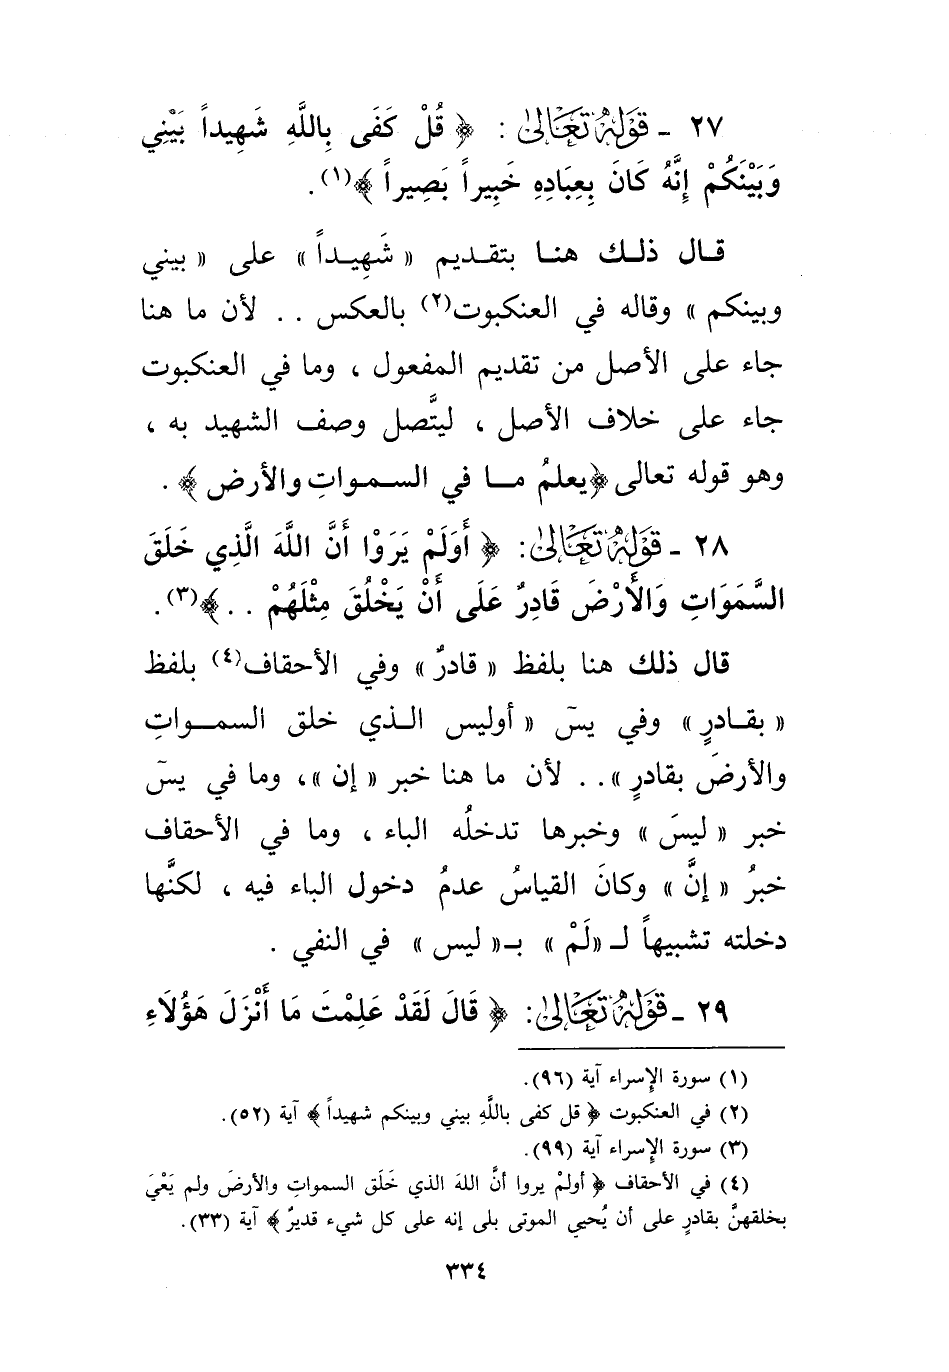 ٢٧ - قَوْلُهُ تَعَالَىٰ : ﴿ قُلْ كَفَى بِاللَّهِ شَهِيداً بَيْنِي
وَبَيْنَكُمْ إِنَّهُ كَانَ بِعِبَادِهِ خَبِيراً بَصِيراً ﴾(١).
قال ذلك هنا بتقديم « شَهِيداً » على « بيني
وبينكم » وقاله في العنكبوت(٢) بالعكس . . لأن ما هنا
جاء على الأصل من تقديم المفعول ، وما في العنكبوت
جاء على خلاف الأصل ، ليتَّصل وصف الشهيد به ،
وهو قوله تعالى ﴿يعلمُ ما في السمواتِ والأرض ﴾ .
٢٨ - قَوْلُهُ تَعَالَىٰ: ﴿ أَوَلَمْ يَرَوْا أَنَّ اللَّهَ الَّذِي خَلَقَ
السَّمَوَاتِ وَالأَرْضَ قَادِرٌ عَلَى أَنْ يَخْلُقَ مِثْلَهُمْ . .﴾(٣).
قال ذلك هنا بلفظ « قادرٌ » وفي الأحقاف(٤) بلفظ
« بقادرٍ » وفي يسۤ « أوليس الذي خلق السمواتِ
والأرضَ بقادرٍ ».. لأن ما هنا خبر « إن »، وما في يسۤ
خبر « ليسَ » وخبرها تدخلُه الباء ، وما في الأحقاف
خبرُ « إنَّ » وكانَ القياسُ عدمُ دخول الباء فيه ، لكنَّها
دخلته تشبيهاً لـ «لَمْ » بـ« ليس » في النفي .
٢٩ - قَوْلُهُ تَعَالَىٰ: ﴿ قَالَ لَقَدْ عَلِمْتَ مَا أَنْزَلَ هَؤُلَاءِ
(١) سورة الإسراء آية (٩٦).
(٢) في العنكبوت ﴿ قل كفى باللَّهِ بيني وبينكم شهيداً ﴾ آية (٥٢).
(٣) سورة الإسراء آية (٩٩).
(٤) في الأحقاف ﴿ أولمْ يروا أنَّ اللهَ الذي خَلَق السمواتِ والأرضَ ولم يَعْيَ
بخلقهنَّ بقادرٍ على أن يُحيي الموتى بلى إنه على كل شيء قديرٌ ﴾ آية (٣٣).
٣٣٤